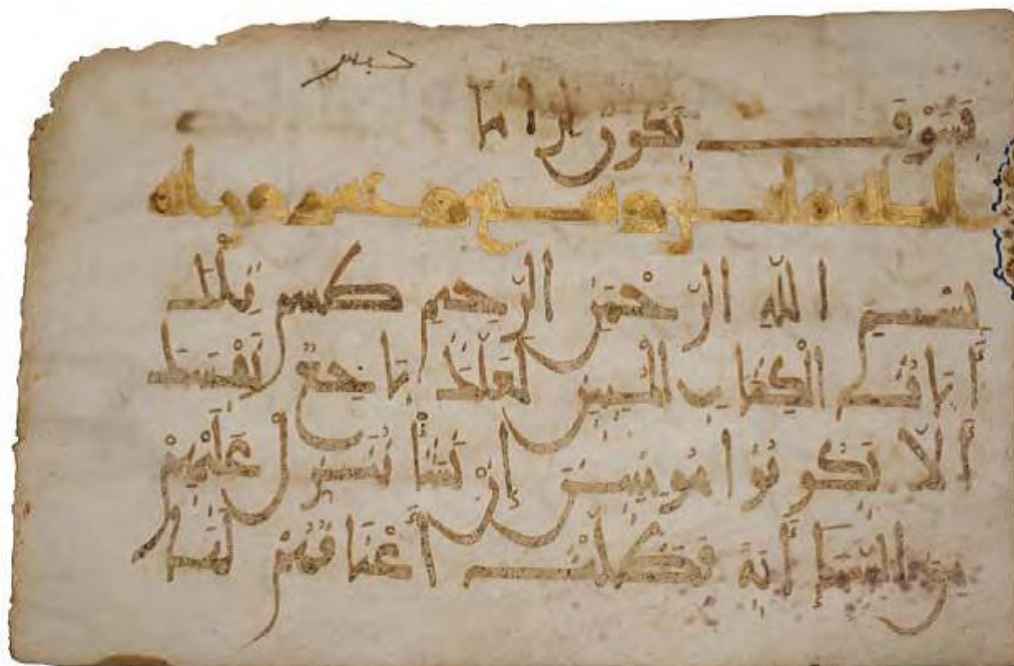 حبس
فَسَوْفَ يَكُونُ لِزَامَا
وعشرون ايه
بِسْمِ اللّٰهِ الرَّحْمَنِ الرَّحِيمِ طسم تِلْكَ
أَيَاتُ الْكِتَابِ الْمُبِينِ لَعَلَّكَ بَاخِعٌ نَفْسَكَ
أَلَّا يَكُونُوا مُومِنِينَ إِنْ نَشَأْ نُنَزِّلْ عَلَيْهِمْ
مِنَ السَّمَا أَيَةً فَظَلَّتْ أَعْنَاقُهُمْ لَهَا